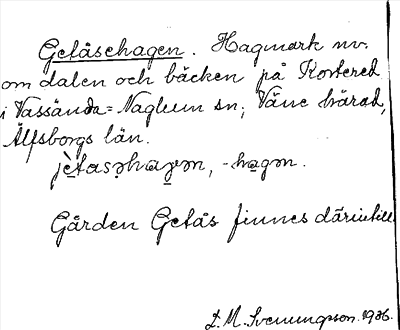 Getåsehagen. Hagmark nv.
om dalen och bäcken på Kortered
i Vassända=Naglum sn; Väne härad,
Älfsborgs län.
jètasəhaɡən, -hagən.
Gården Getås finnes därintill
D. M. Svenungsson. 1936.